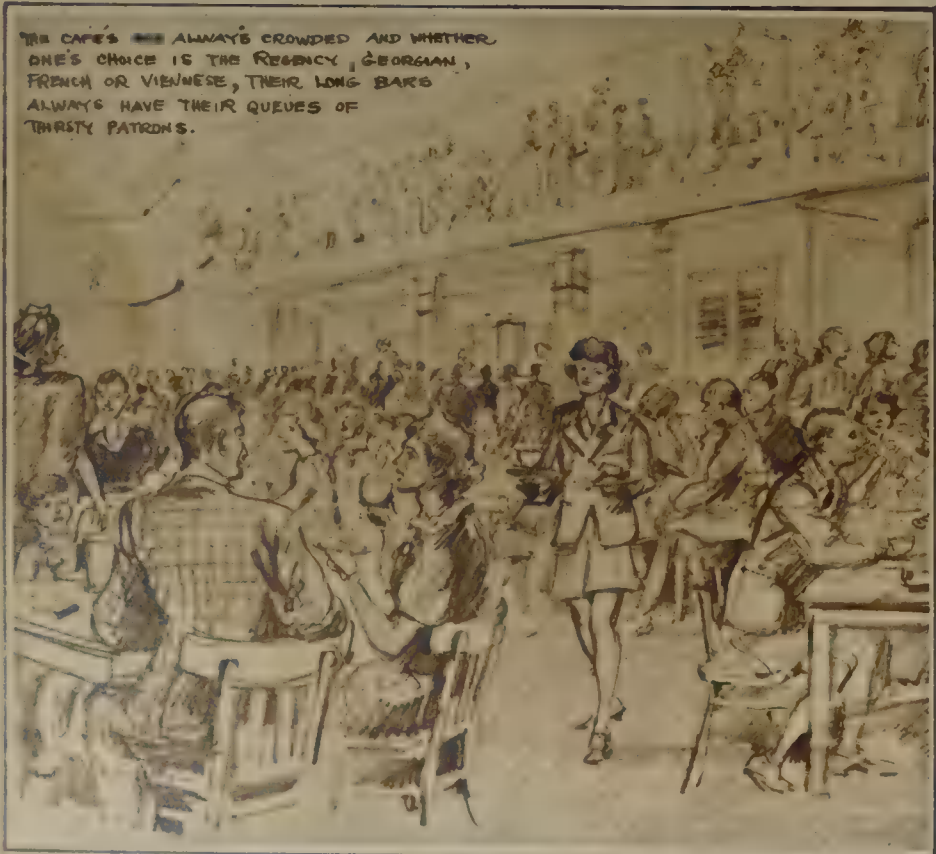 THE CAFÉ'S ALWAYS CROWDED AND WHETHER
ONE'S CHOICE IS THE REGENCY, GEORGIAN,
FRENCH OR VIENNESE, THEIR LONG BARS
ALWAYS HAVE THEIR QUEUES OF
THIRSTY PATRONS.